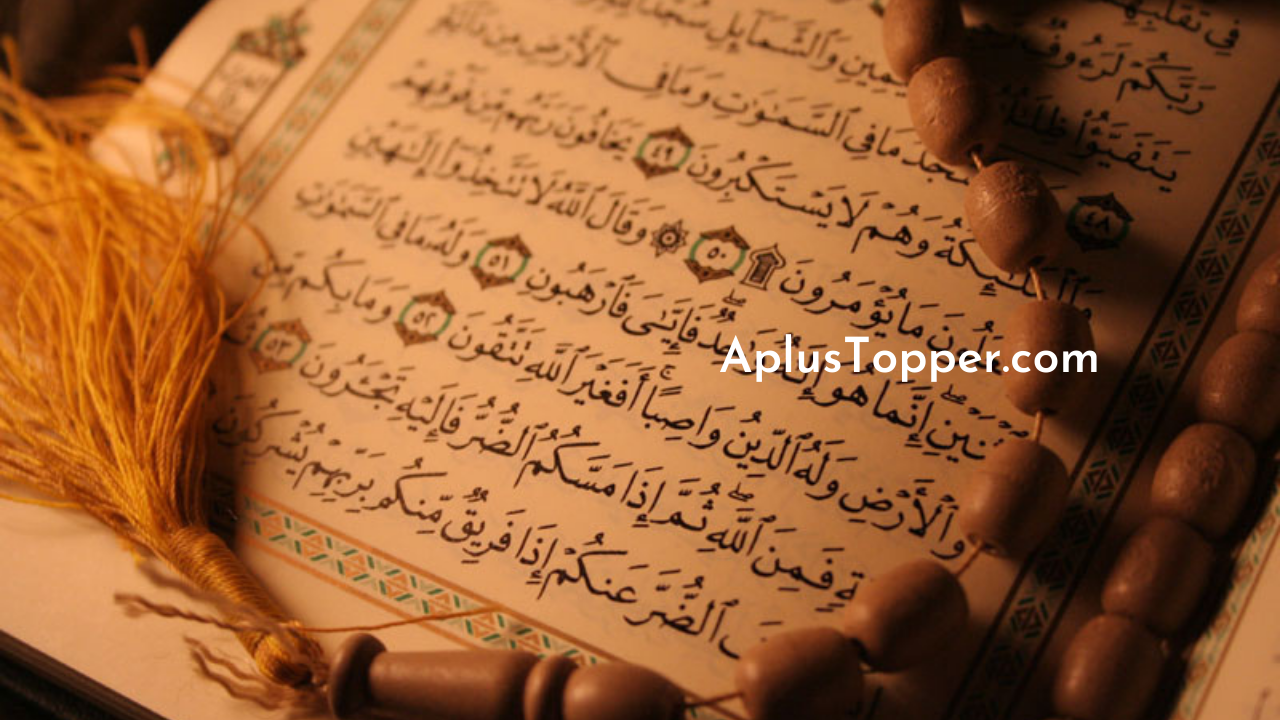 فِي تَقَلُّبِهِمْ
رَبَّكُمْ لَرَءُوفٌ
يَتَفَيَّؤُا۟ ظِلَـٰلُهُ وَٱلشَّمَآئِلِ سُجَّدًا
٤٨ مَا فِى ٱلسَّمَـٰوَٰتِ وَمَا فِى ٱلْأَرْضِ مِن دَآبَّةٍ
وَهُمْ لَا يَسْتَكْبِرُونَ ٤٩ يَخَافُونَ رَبَّهُم مِّن فَوْقِهِمْ
مَا يُؤْمَرُونَ ۩ ٥٠ ۞ وَقَالَ ٱللَّهُ لَا تَتَّخِذُوٓا۟ إِلَـٰهَيْنِ
ٱثْنَيْنِ إِنَّمَا هُوَ إِلَـٰهٌ فَإِيَّـٰىَ فَٱرْهَبُونِ ٥١ وَلَهُۥ مَا فِى ٱلسَّمَـٰوَٰتِ
وَٱلْأَرْضِ وَلَهُ ٱلدِّينُ وَاصِبًا ۚ أَفَغَيْرَ ٱللَّهِ تَتَّقُونَ ٥٢ وَمَا بِكُم مِّن
فَمِنَ ٱللَّهِ ۖ ثُمَّ إِذَا مَسَّكُمُ ٱلضُّرُّ فَإِلَيْهِ تَجْـَٔرُونَ ٥٣
ٱلضُّرَّ عَنكُمْ إِذَا فَرِيقٌ مِّنكُم بِرَبِّهِمْ يُشْرِكُونَ
AplusTopper.com